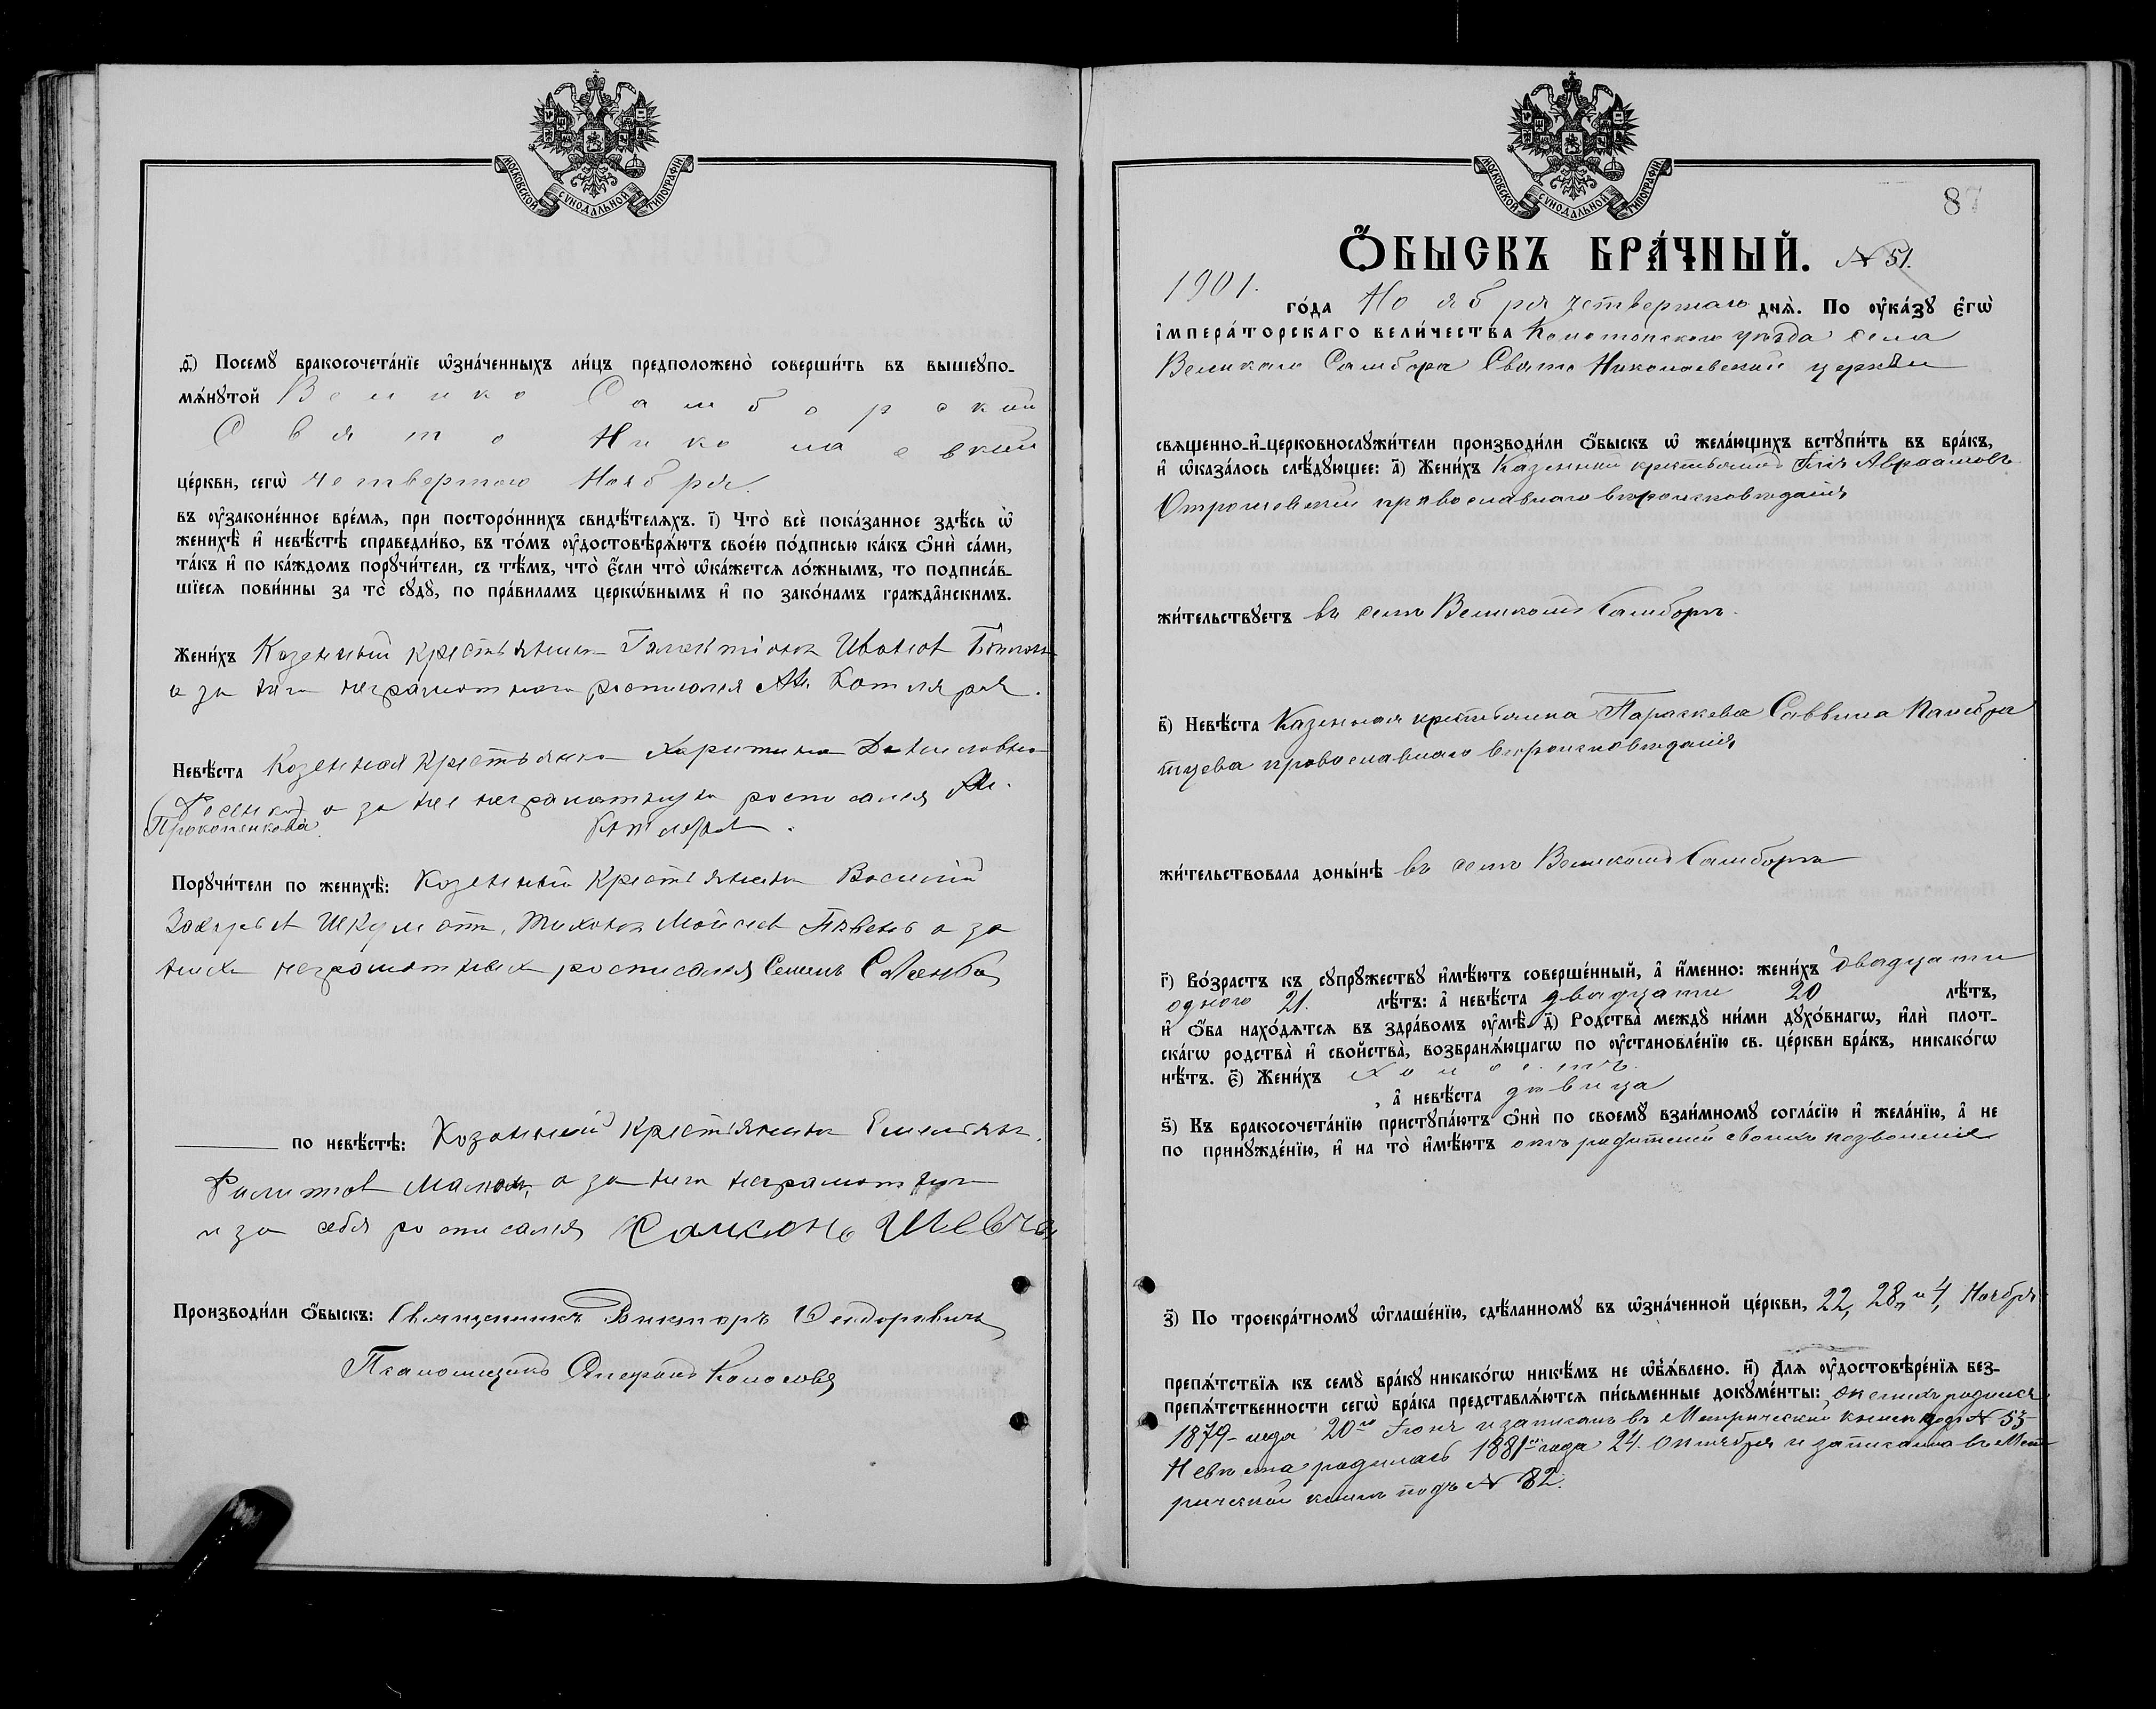 МОСКОВСКОЙ СѴНОДАЛЬНОЙ ТИПОГРАФІИ
ѳ҃) Посемꙋ бракосочета́нїе ѡ҆зна́ченныхъ ли́цъ предположено̀ соверши́ть въ вышеꙋпо-
мѧ́нꙋтой Велико Самборской
Свято Николаевкой
це́ркви, сегѡ̀ четвертого Ноября.
въ ᲂу҆законе́нное вре́мѧ, при посторо́ннихъ свидѣ́телѧхъ. і҃) Что̀ всѐ пока́занное здѣ́сь ѡ҆
женихѣ̀ и҆ невѣ́стѣ справедли́во, въ то́мъ ᲂу҆достовѣрѧ́ютъ свое́ю по́дписью ка́къ ѻ҆нѝ са́ми,
та́къ и҆ по ка́ждомъ порꙋчи́тели, съ тѣ́мъ, что̀ є҆́сли что̀ ѡ҆ка́жетсѧ ло́жнымъ, то подписа́в-
шїесѧ пови́нны за то̀ сꙋдꙋ̀, по пра́виламъ церкѡ́внымъ и҆ по зако́намъ гражда̑нскимъ.
Жени́хъ Казенный крестьянинъ Галактіонъ Ивановъ
а за него неграмотнаго росписался Ан. Котляров.
Невѣ́ста Козенная Крестьянка Харитина Даниловна
Фесенко а за нее неграмотную росписался Ан.
(Прокопенкова) Котляров.
Порꙋчи́тели по женихѣ̀: Козенный Крестьянинъ Василій
Захарьев Шкумат, Тихонъ Мойсеев Півень а за
нихъ неграмотныхъ росписался Семенъ
по невѣ́стѣ: Козенный Крестьянинъ Емельянъ
Филипов а за него неграмотнаго
и за себя росписался Самсонъ
Производи́ли ѻ҆́быскъ: Священникъ Викторъ Ѳеодоровичъ
Псаломщикъ
МОСКОВСКОЙ СѴНОДАЛЬНОЙ ТИПОГРАФІИ
87
Ѻ҆́БЫСКЪ БРА́ЧНЫЙ. № 51.
1901. го́да Ноября четвертаго днѧ̀. По ᲂу҆ка́зꙋ є҆гѡ̀
і҆мпера́торскаго вели́чества Конотопскаго уѣзда села
Великаго Самбора Свято Николаевской церкви
свѧщенно-и҆-церковнослꙋжи́тели производи́ли ѻ҆́быскъ ѡ҆ жела́ющихъ встꙋпи́ть въ бра́къ,
и҆ ѡ҆каза́лось слѣ́дꙋющее: а҃) Жени́хъ Казенный крестьянинъ Илія Авраамовъ
православнаго вѣроисповѣданія
жи́тельствꙋетъ въ селѣ Великомъ Самборѣ.
в҃) Невѣ́ста Казенная крестьянка Параскева Саввина
православнаго вѣроисповѣданія
жи́тельствовала доны́нѣ въ селѣ Великомъ Самборѣ
г҃) Во́зрастъ къ сꙋпрꙋ́жествꙋ и҆мѣ́ютъ соверше́нный, а҆ и҆́менно: жени́хъ двадцати
одного 21. лѣ́тъ: а҆ невѣ́ста двадцати 20 лѣ́тъ,
и҆ ѻ҆́ба нахо́дѧтсѧ въ здра́вомъ ᲂу҆мѣ̀. д҃) Родства̀ междꙋ̀ ни́ми дꙋхо́внагѡ, и҆лѝ плот-
ска́гѡ родства̀ и҆ свойства̀, возбранѧ́ющагѡ по ᲂу҆становле́нїю св. це́ркви бра́къ, никако́гѡ
нѣ́тъ. є҃) Жени́хъ холостъ.
, а҆ невѣ́ста дѣвица
ѕ҃) Къ бракосочета́нїю пристꙋпа́ютъ ѻ҆нѝ по своемꙋ̀ взаи́мномꙋ согла́сїю и҆ жела́нїю, а҆ не
по принꙋжде́нїю, и҆ на то̀ и҆мѣ́ютъ отъ родителей своихъ позволеніе
з҃) По троекра́тномꙋ ѡ҆глаше́нїю, сдѣ́ланномꙋ въ ѡ҆зна́ченной це́ркви, 22, 28, и 4, Ноября
препѧ́тствїѧ къ семꙋ̀ бра́кꙋ никако́гѡ никѣ́мъ не ѡ҆б̾ѧ́влено. и҃) Длѧ ᲂу҆достовѣре́нїѧ без-
препѧ́тственности сегѡ̀ бра́ка представлѧ́ютсѧ пи́сьменные докꙋме́нты: женихъ родился
1879 года 20го Іюня и записанъ въ Метрической книгѣ подъ № 53
Невѣста родилась 1881го года 24. Октября и записана въ Мет
рической книгѣ подъ № 82.